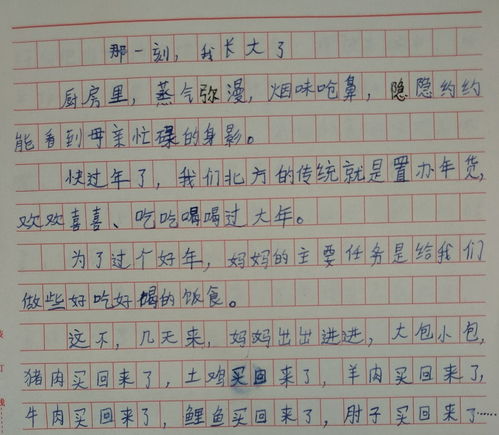 那一刻，我长大了
厨房里，蒸气弥漫，烟味呛鼻，隐隐约约
能看到母亲忙碌的身影。
快过年了，我们北方的传统就是置办年货，
欢欢喜喜、吃吃喝喝过大年。
为了过个好年，妈妈的主要任务是给我们
做些好吃好喝的饭食。
这不，几天来，妈妈出出进进，大包小包，
猪肉买回来了，土鸡买回来了，羊肉买回来了，
牛肉买回来了，鲤鱼买回来了，肘子买回来了……